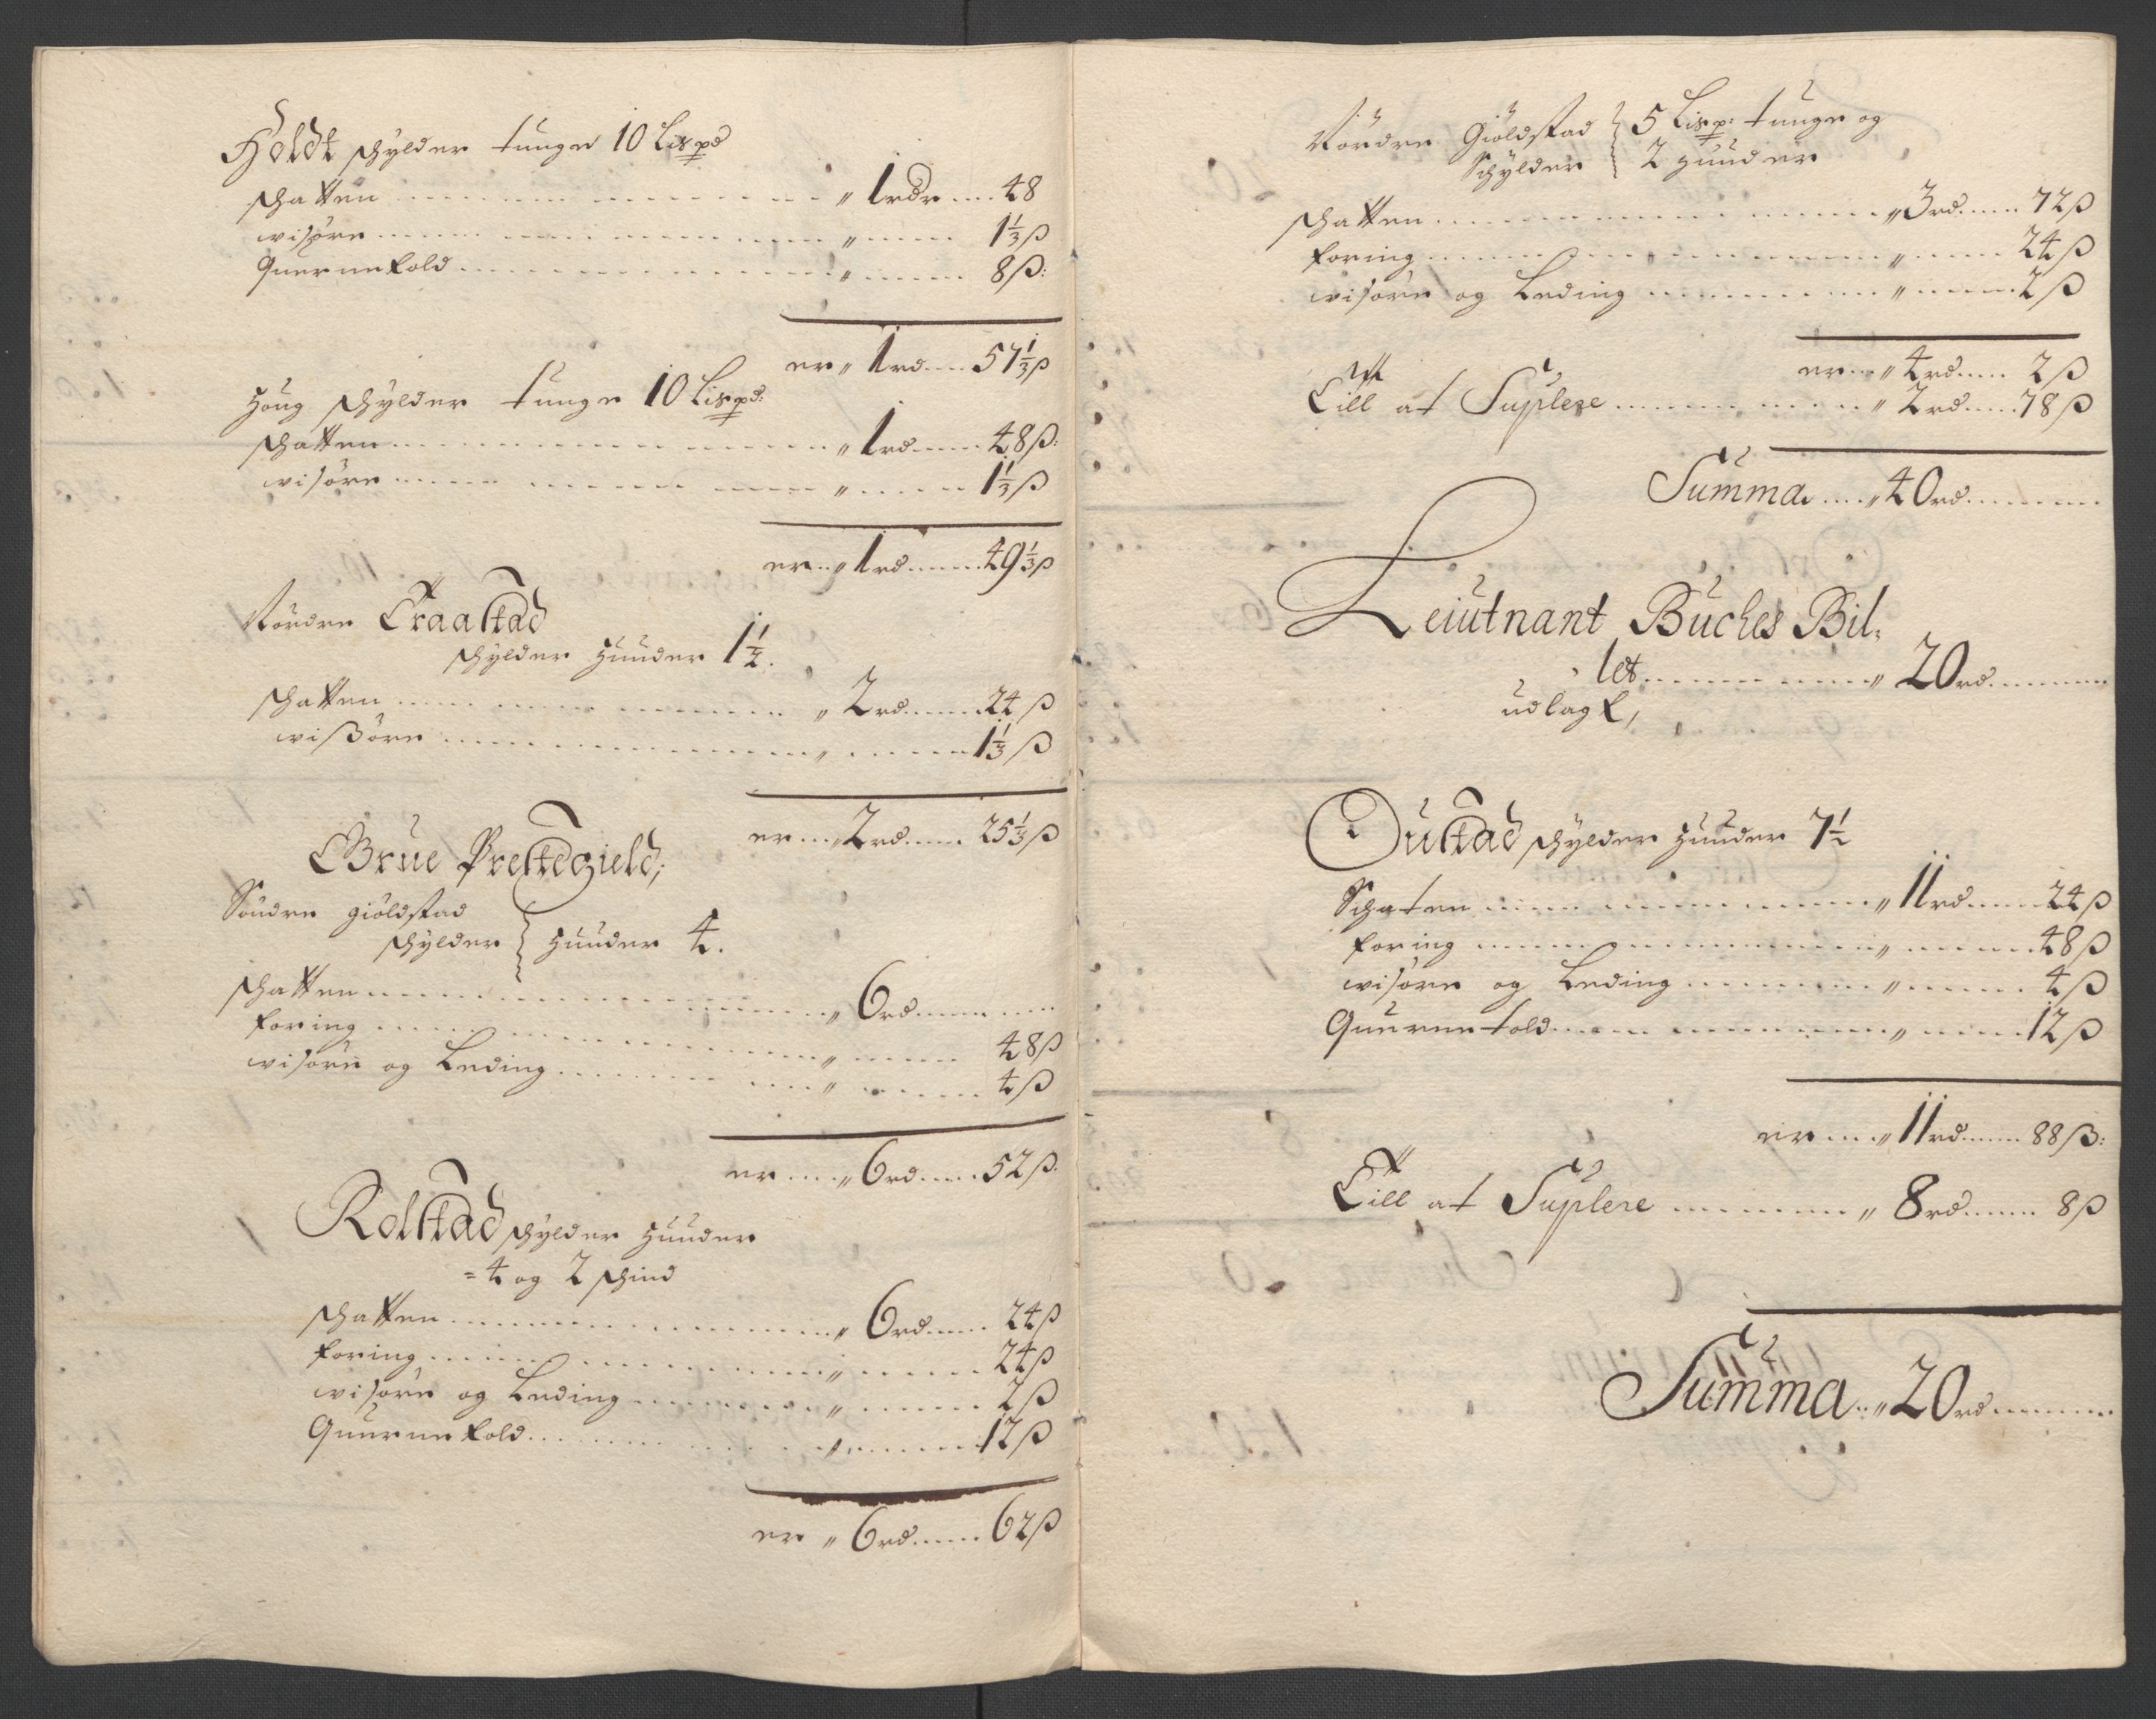 Holdt schylder tunge 10 Lispd
schatten ........ „ 1 rdr .... 48
visøre ........ „ ..... 1⅓ ß
Quernetold ........ „ ..... 8 ß:
er „ 1 rd .... 57⅓ ß
Houg schylder tunge 10 Lispd:
schatten ........ „ 1 rd .... 48 ß:
visøre ........ „ ..... 1⅓ ß
er .. „ 1 rd .... 49⅓ ß
Nordre Traastad
schylder Hunder 1½.
schatten ........ „ 2 rd .... 24 ß
vißøre ........ „ ..... 1⅓ ß
er ... „ 2 rd .... 25⅓ ß
Grue Prestegield;
Søndre giøldstad
schylder } Hunder 4.
schatten ........ „ 6 rd ........
foring ........ „ ..... 48 ß
visøre og Leding ........ „ ..... 4 ß
er .... „ 6 rd .... 52 ß.
Rolstad schylder Hunder
= 4 og 2 schind
schatten ........ „ 6 rd .... 24 ß
foring ........ „ ..... 24 ß
visøre og Leding ........ „ ..... 2 ß
Quernetold ........ „ ..... 12 ß
er „ 6 rd .... 62 ß
Nordre Giøldstad } 5 Lisp: tunge og
Schylder } 2 Hunder
schatten ........ „ 3 rd .... 72 ß
foring ........ „ ..... 24 ß
visøre og Leding ........ „ ..... 2 ß
er ... „ 4 rd .... 2 ß
Till at Suplere ........ „ 2 rd .... 78 ß
Summa .... „ 40 rd ........
Leiutnant Buches Bil„
let ........ „ 20 rd ........
udlagt,
Oustad schylder Hunder 7½
Schaten ........ „ 11 rd .... 24 ß
foring ........ „ ..... 48 ß
visøre og Leding ........ „ ..... 4 ß
Quernetold ........ „ ..... 12 ß
er .... „ 11 rd .... 88 ß:
Till at Suplere ........ „ 8 rd .... 8 ß
Summa .. „ 20 rd ........